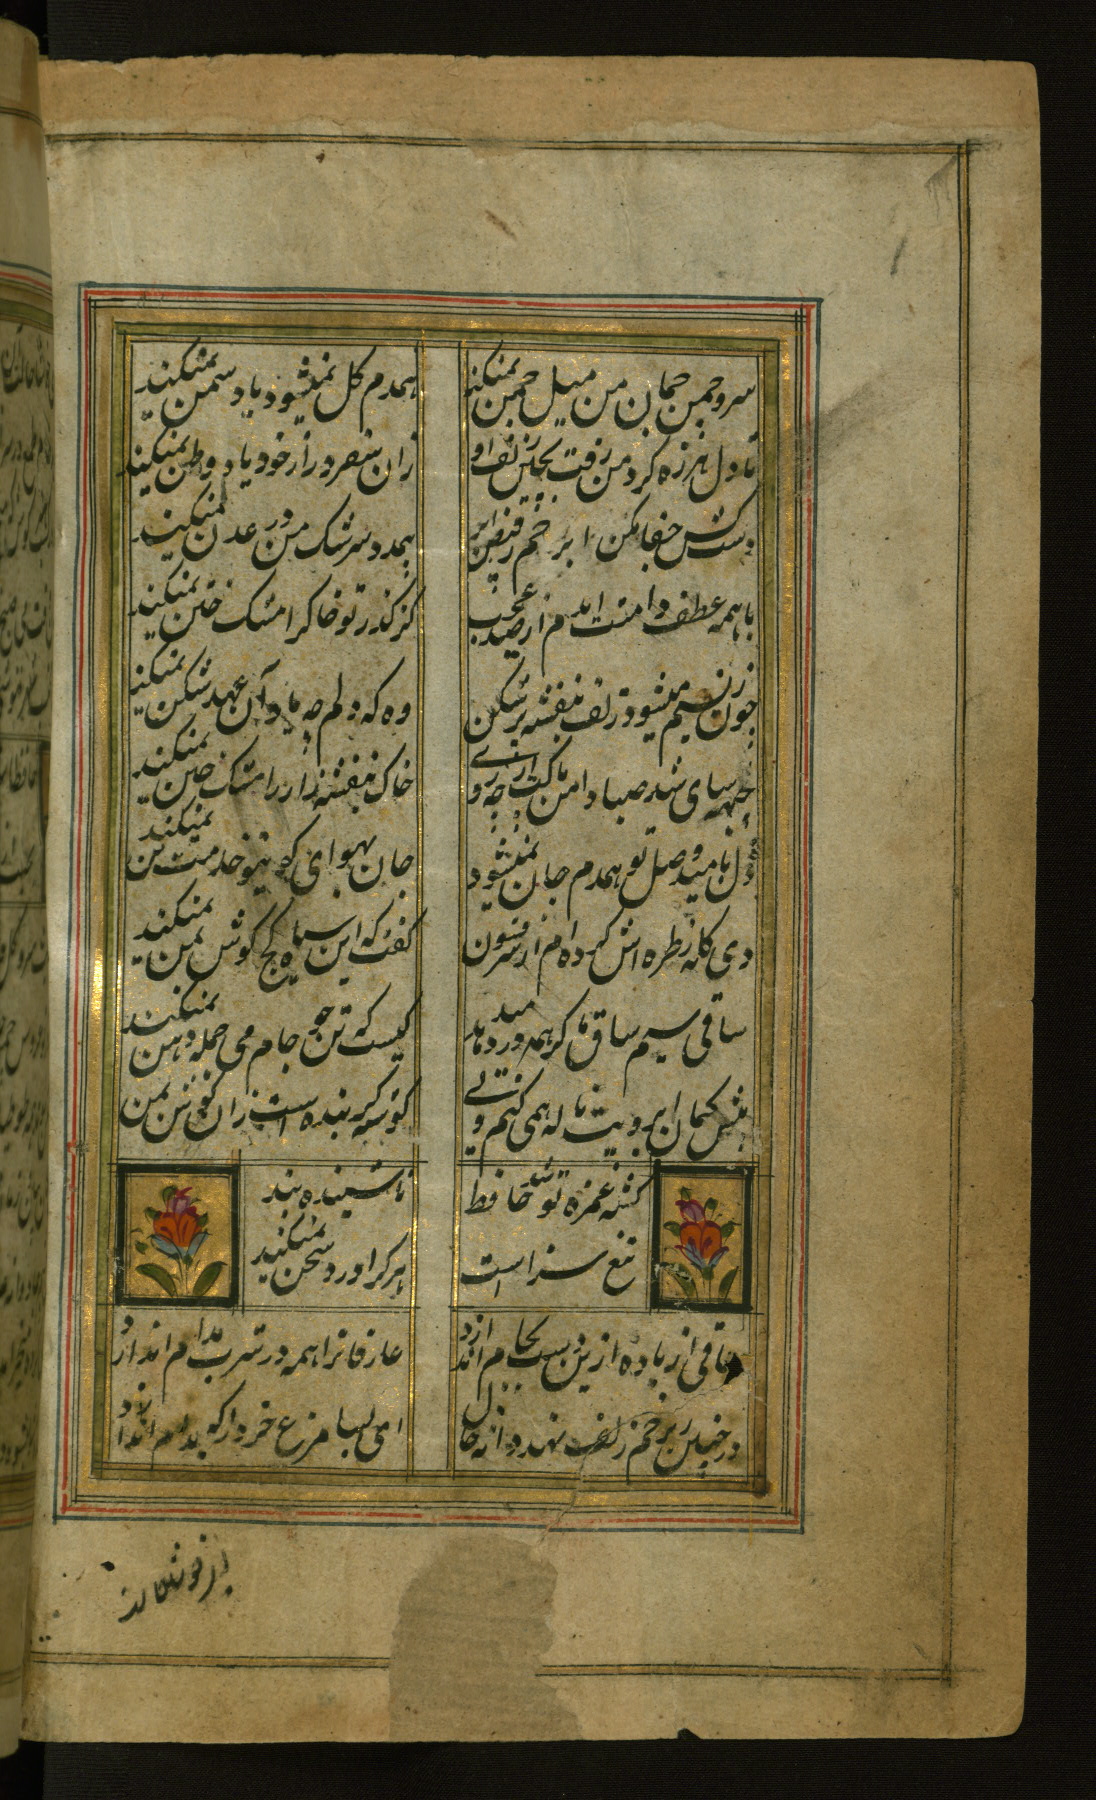 سرو چمن جمان من میل چمن نمیکند
همدم گل نمیشود یاد سمن نمیکند
تا دل هرزه کرد من رفت بچین زلف او
زان سفر دراز خود یاد وطن نمیکند
دست کش جفا مکن ابر خم
همه در سرشک من در عدن نمیکند
با همه عطف دامنت ایدم از صبا عجب
کز گذر تو خاک را مشک ختن نمیکند
چون ز نسیم میشود زلف بنفشه پرشکن
وه که دلم چه یاد آن عهد شکن نمیکند
سای شد صبا دامن پاکت از چه روی
خاک بنفشه زار را مشک ختن نمیکند
دل بامید وصل تو همدم جان نمیشود
جان بهوای کوی تو خدمت تن نمیکند
دی گله ز طره اش کرده ام از سر فسون
گفت که این سیاه کج گوش بمن نمیکند
ساقی سیم ساق ما گر همه درد میدهد
کیست که تن چو جام می جمله دهن نمیکند
پیش کمان ابرویت ناله همی کنم ولی
گوشه گیر بنده است زان گوش بمن
کشته غمزه تو شد حافظ
ناشنیده پند
تیغ سزاست
هر کرا درد سخن نمیکند
ساقی ار باده ازین دست بجام اندازد
عارفانرا همه در شرب مدام اندازد
ور چنین زیر خم زلف نهد دانه خال
ای بسا مرغ خرد را که بدام اندازد